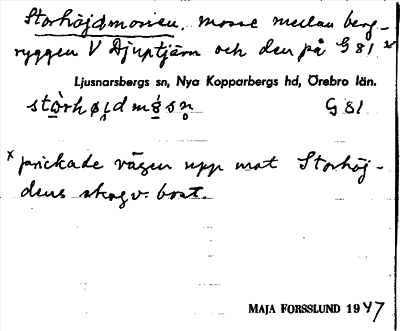 Storhöjdmossen, mosse mellan berg-
ryggen V Djuptjärn och den på G 81 x
Ljusnarsbergs sn, Nya Kopparbergs hd, Örebro län.
G 81
x prickade vägen upp mot Storhöj-
dens skogv. bost.
MAJA FORSSLUND 1947